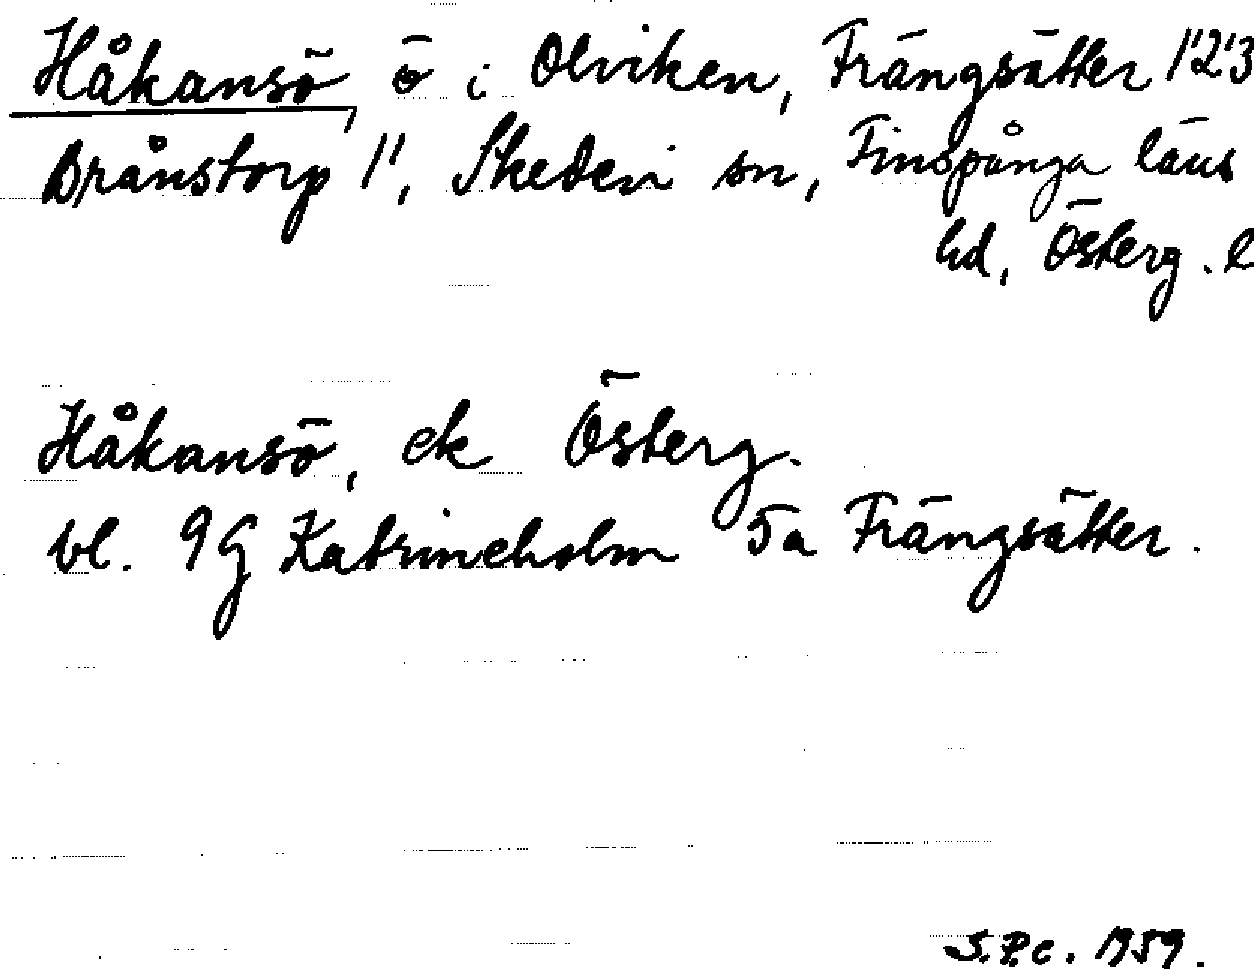 Håkansö, ö i Olviken, Frängsätter 1'2'3
Brånstorp 1', Skedevi sn, Finspånga läns
hd, Österg. l
Håkansö, ek Österg.
bl. 9G Katrineholm 5a Frängsätter.
S.P.c. 1959.